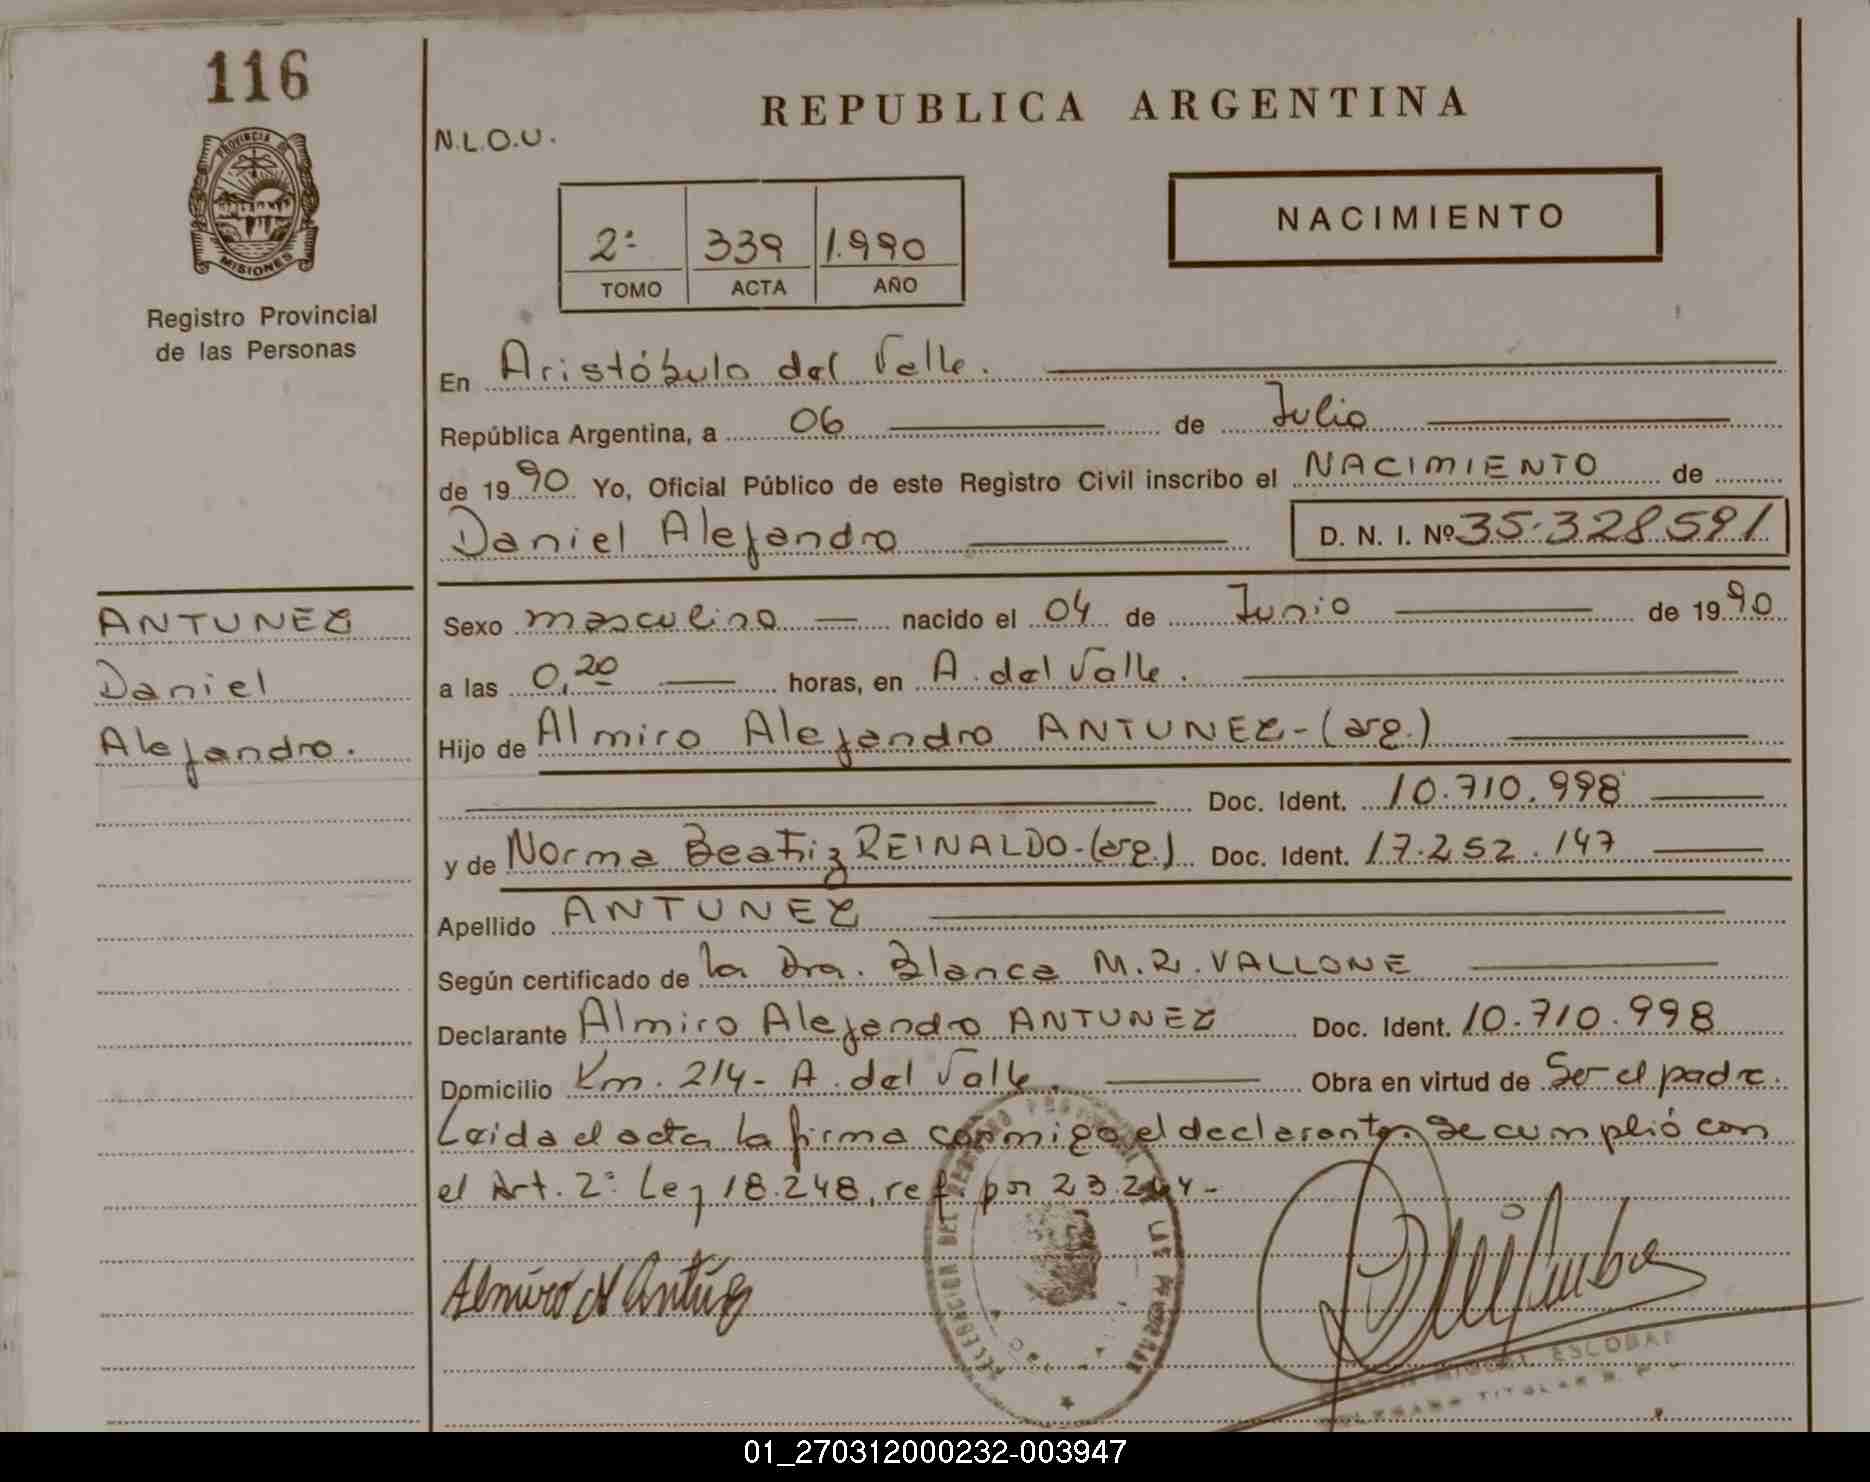 116
PROVINCIA DE
MISIONES
Registro Provincial
de las Personas
ANTUNEZ
Daniel
Alejandro.
REPUBLICA ARGENTINA
N.L.O.U.
NACIMIENTO
2º 339 1.990
TOMO ACTA AÑO
En Aristóbulo del Valle.
República Argentina, a 06 de Julio
de 1990 Yo, Oficial Público de este Registro Civil inscribo el NACIMIENTO de
Daniel Alejandro D. N. I. Nº 35.328591
Sexo masculino nacido el 04 de Junio de 1990
a las 0,20 horas, en A. del Valle.
Hijo de Almiro Alejandro ANTUNEZ-(arg.)
Doc. Ident. 10.710.998
y de Norma Beatriz REINALDO-(arg.) Doc. Ident. 17.252.147
Apellido ANTUNEZ
Según certificado de la Dra. Blanca M.R. VALLONE
Declarante Almiro Alejandro ANTUNEZ Doc. Ident. 10.710.998
Domicilio Km. 214- A. del Valle. Obra en virtud de Ser el padre.
Leida el acta la firma conmigo el declarante. Se cumplió con
el Art. 2º Ley 18.248, ref. por 23.264-
DELEGACION DEL REGISTRO PROVINCIAL DE LAS PERSONAS
Almiro A Antúnez
MIGUEL ESCOBAR
TITULAR
01_270312000232-003947